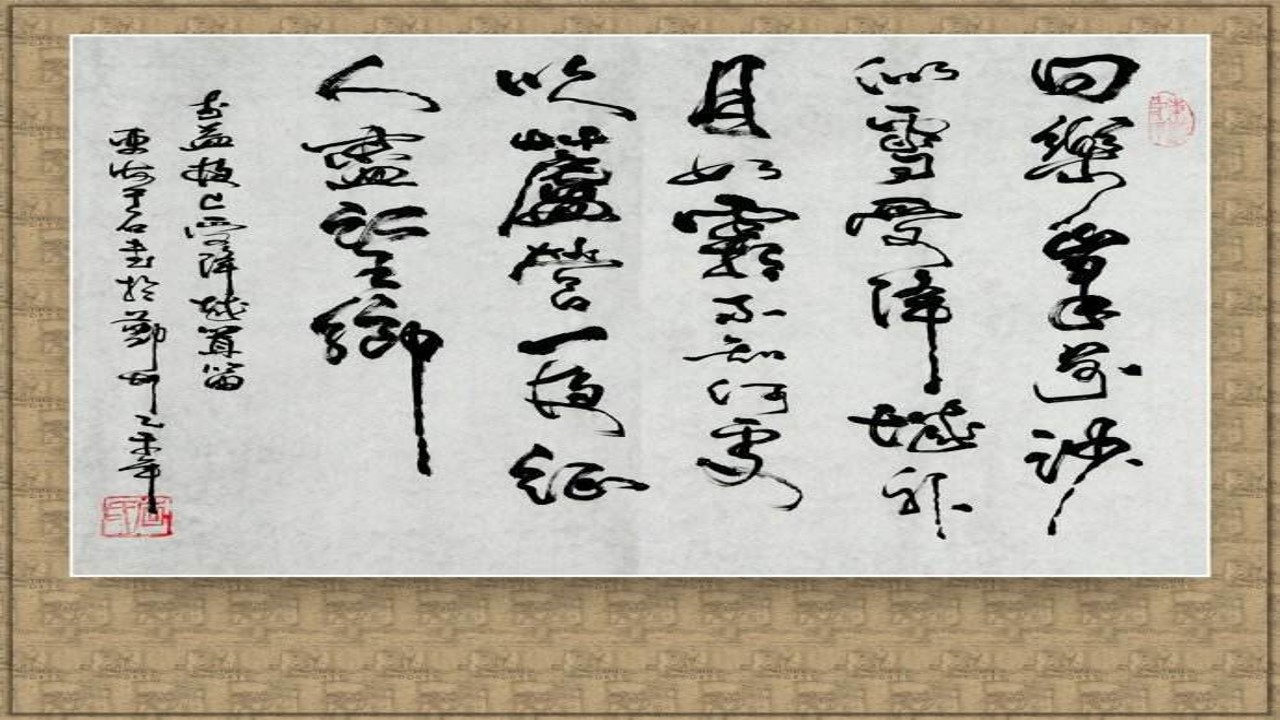 回樂峯前沙
似雪受降城外
月如霜不知何處
吹蘆管一夜征
人盡望鄉
李益夜上受降城聞笛
石書於鄭州乙未年